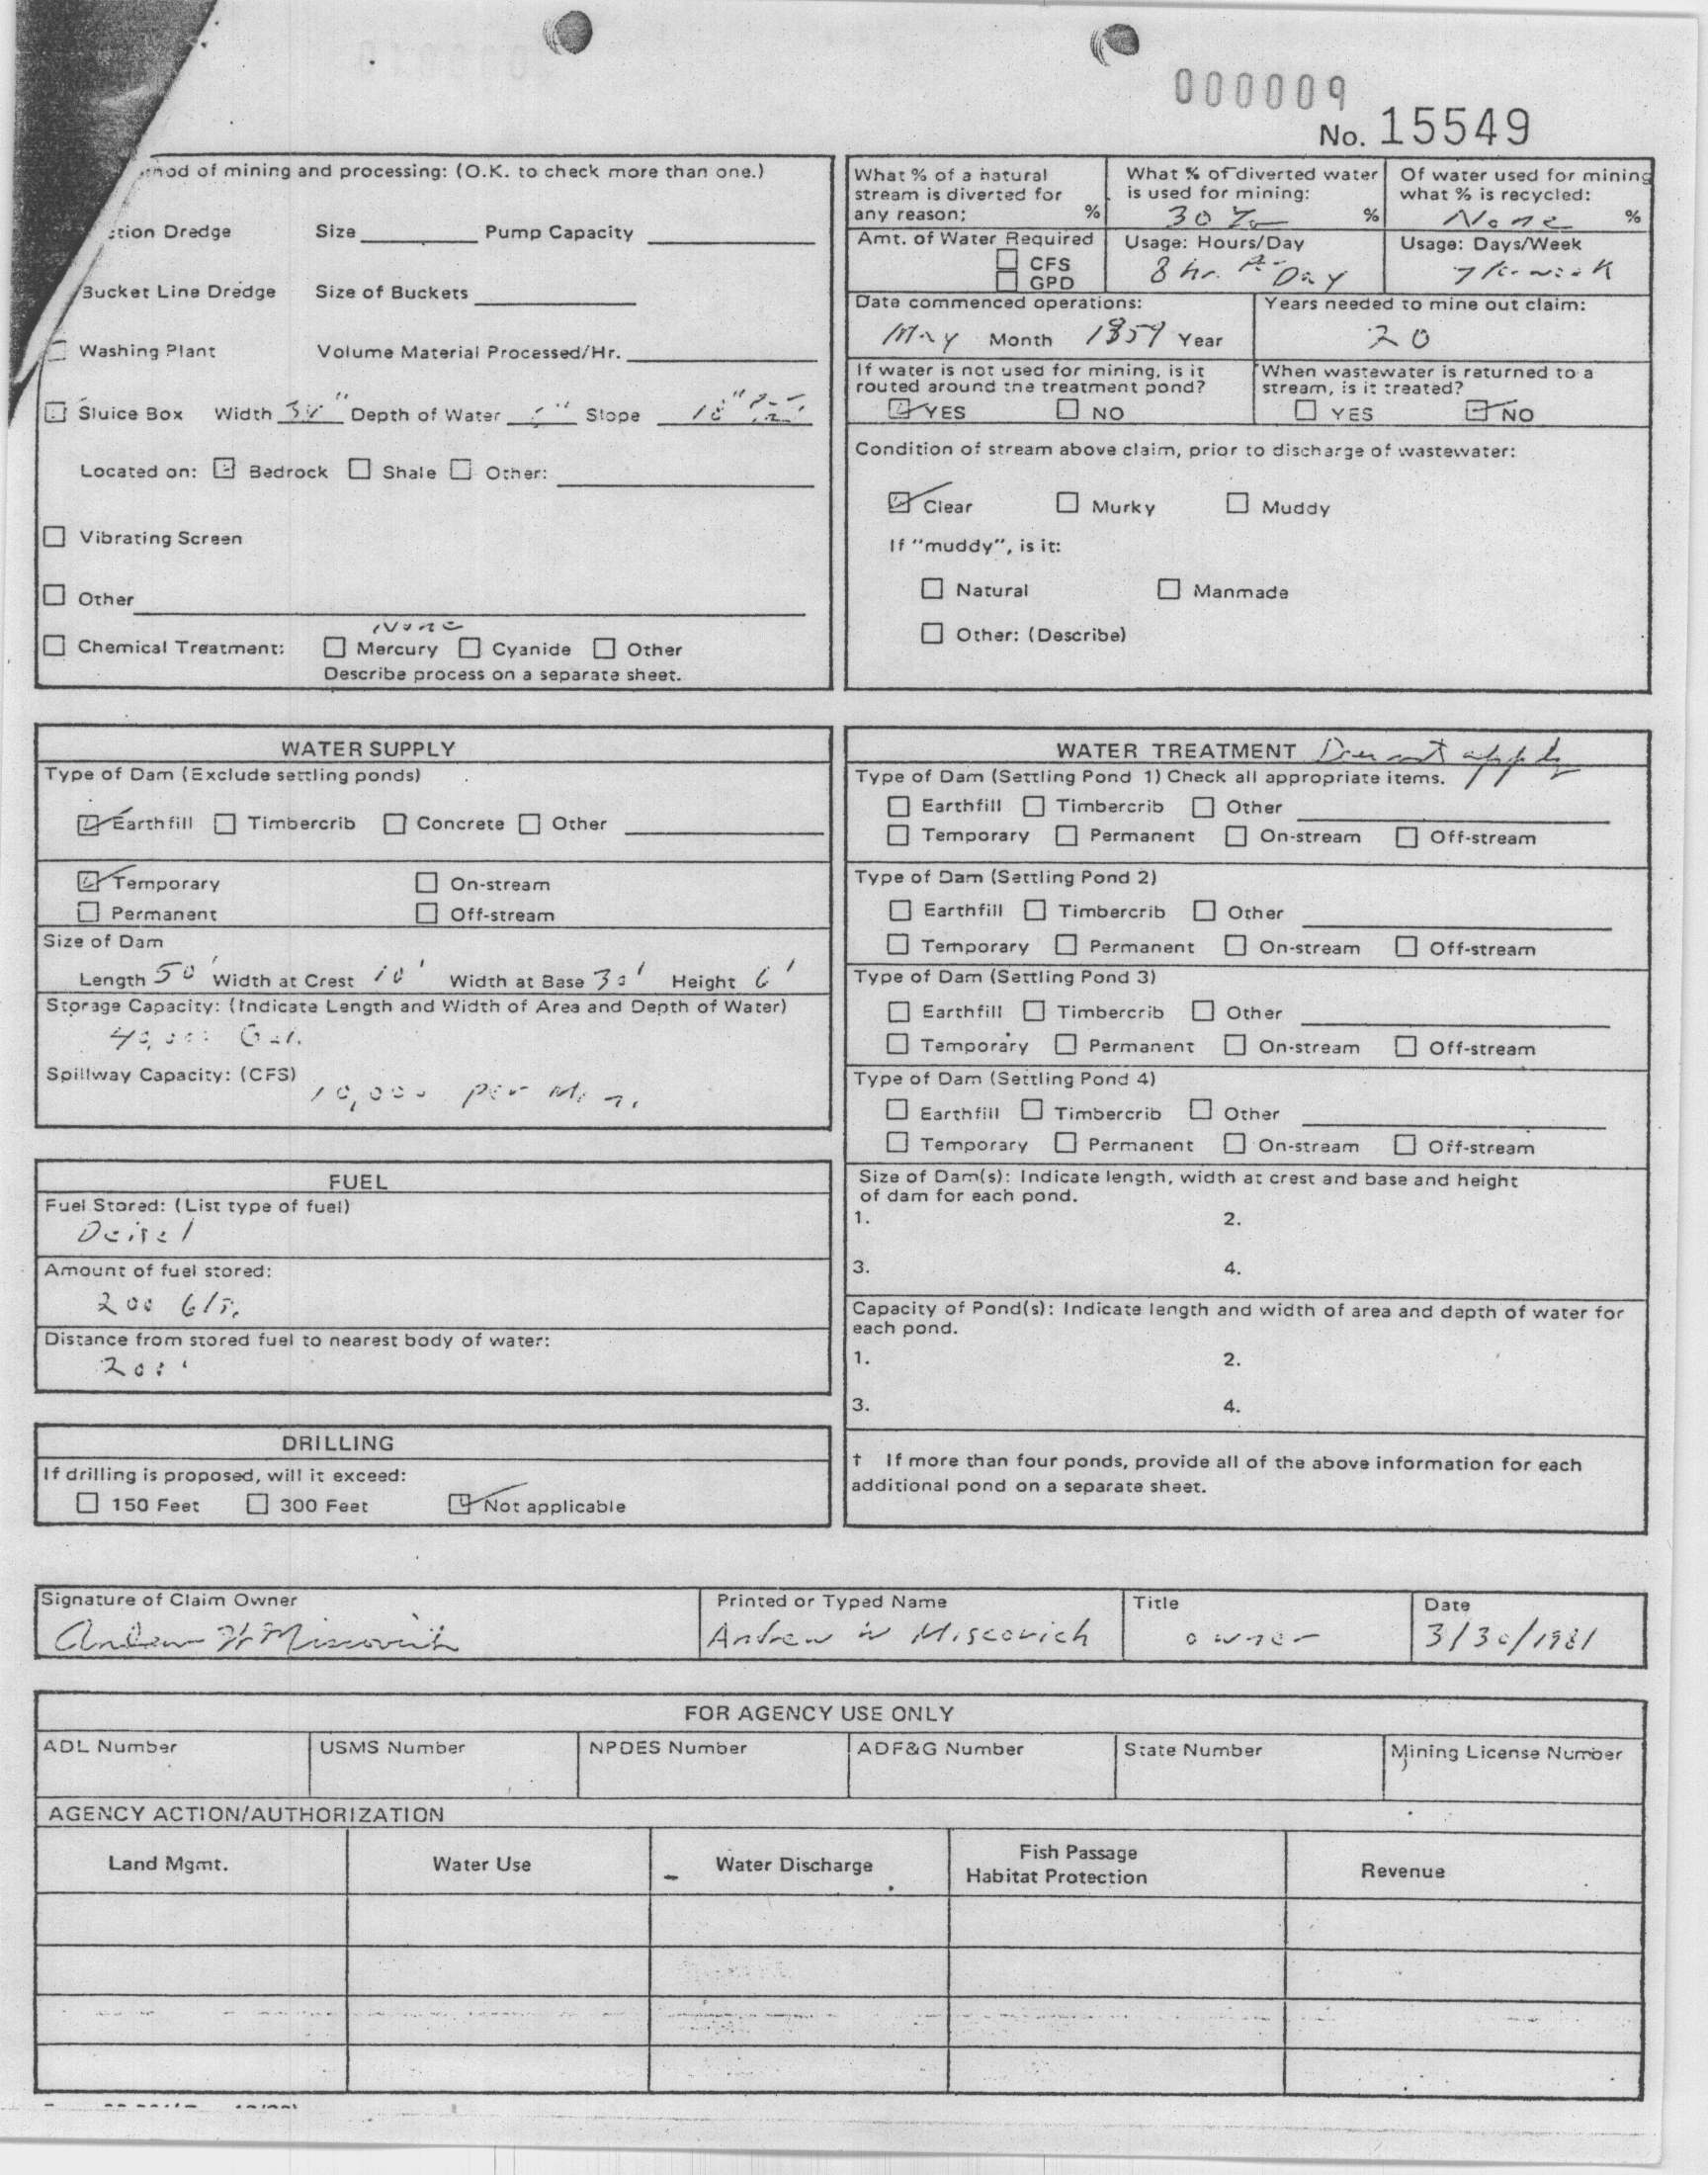 000009
No. 15549
of mining and processing: (O.K. to check more than one.)
Dredge Size Pump Capacity
Bucket Line Dredge Size of Buckets
Washing Plant Volume Material Processed/Hr.
Sluice Box Width Depth of Water Slope
Located on: Bedrock Shale Other:
Vibrating Screen
Other
None
Chemical Treatment: Mercury Cyanide Other
Describe process on a separate sheet.
What % of a natural
stream is diverted for
any reason; %
What % of diverted water
is used for mining:
30 % %
Of water used for mining
what % is recycled:
None %
Amt. of Water Required
CFS
GPD
Usage: Hours/Day
8 hr. Day
Usage: Days/Week
7
Date commenced operations:
May Month Year
Years needed to mine out claim:
20
If water is not used for mining, is it
routed around the treatment pond?
YES NO
When wastewater is returned to a
stream, is it treated?
YES NO
Condition of stream above claim, prior to discharge of wastewater:
Clear Murky Muddy
If "muddy", is it:
Natural Manmade
Other: (Describe)
WATER SUPPLY
Type of Dam (Exclude settling ponds)
Earthfill Timbercrib Concrete Other
Temporary On-stream
Permanent Off-stream
Size of Dam
Length 50' Width at Crest 10' Width at Base 30' Height 6'
Storage Capacity: (Indicate Length and Width of Area and Depth of Water)
40,000 Gal.
Spillway Capacity: (CFS)
10,000 per Min.
FUEL
Fuel Stored: (List type of fuel)
Deisel
Amount of fuel stored:
200
Distance from stored fuel to nearest body of water:
200'
DRILLING
If drilling is proposed, will it exceed:
150 Feet 300 Feet Not applicable
WATER TREATMENT Does not apply
Type of Dam (Settling Pond 1) Check all appropriate items.
Earthfill Timbercrib Other
Temporary Permanent On-stream Off-stream
Type of Dam (Settling Pond 2)
Earthfill Timbercrib Other
Temporary Permanent On-stream Off-stream
Type of Dam (Settling Pond 3)
Earthfill Timbercrib Other
Temporary Permanent On-stream Off-stream
Type of Dam (Settling Pond 4)
Earthfill Timbercrib Other
Temporary Permanent On-stream Off-stream
Size of Dam(s): Indicate length, width at crest and base and height
of dam for each pond.
1. 2.
3. 4.
Capacity of Pond(s): Indicate length and width of area and depth of water for
each pond.
1. 2.
3. 4.
† If more than four ponds, provide all of the above information for each
additional pond on a separate sheet.
Signature of Claim Owner Printed or Typed Name Title Date
Andrew W Miscovich Andrew W Miscovich owner 3/30/1981
FOR AGENCY USE ONLY
ADL Number USMS Number NPDES Number ADF&G Number State Number Mining License Number
AGENCY ACTION/AUTHORIZATION
Land Mgmt. Water Use Water Discharge Fish Passage Habitat Protection Revenue